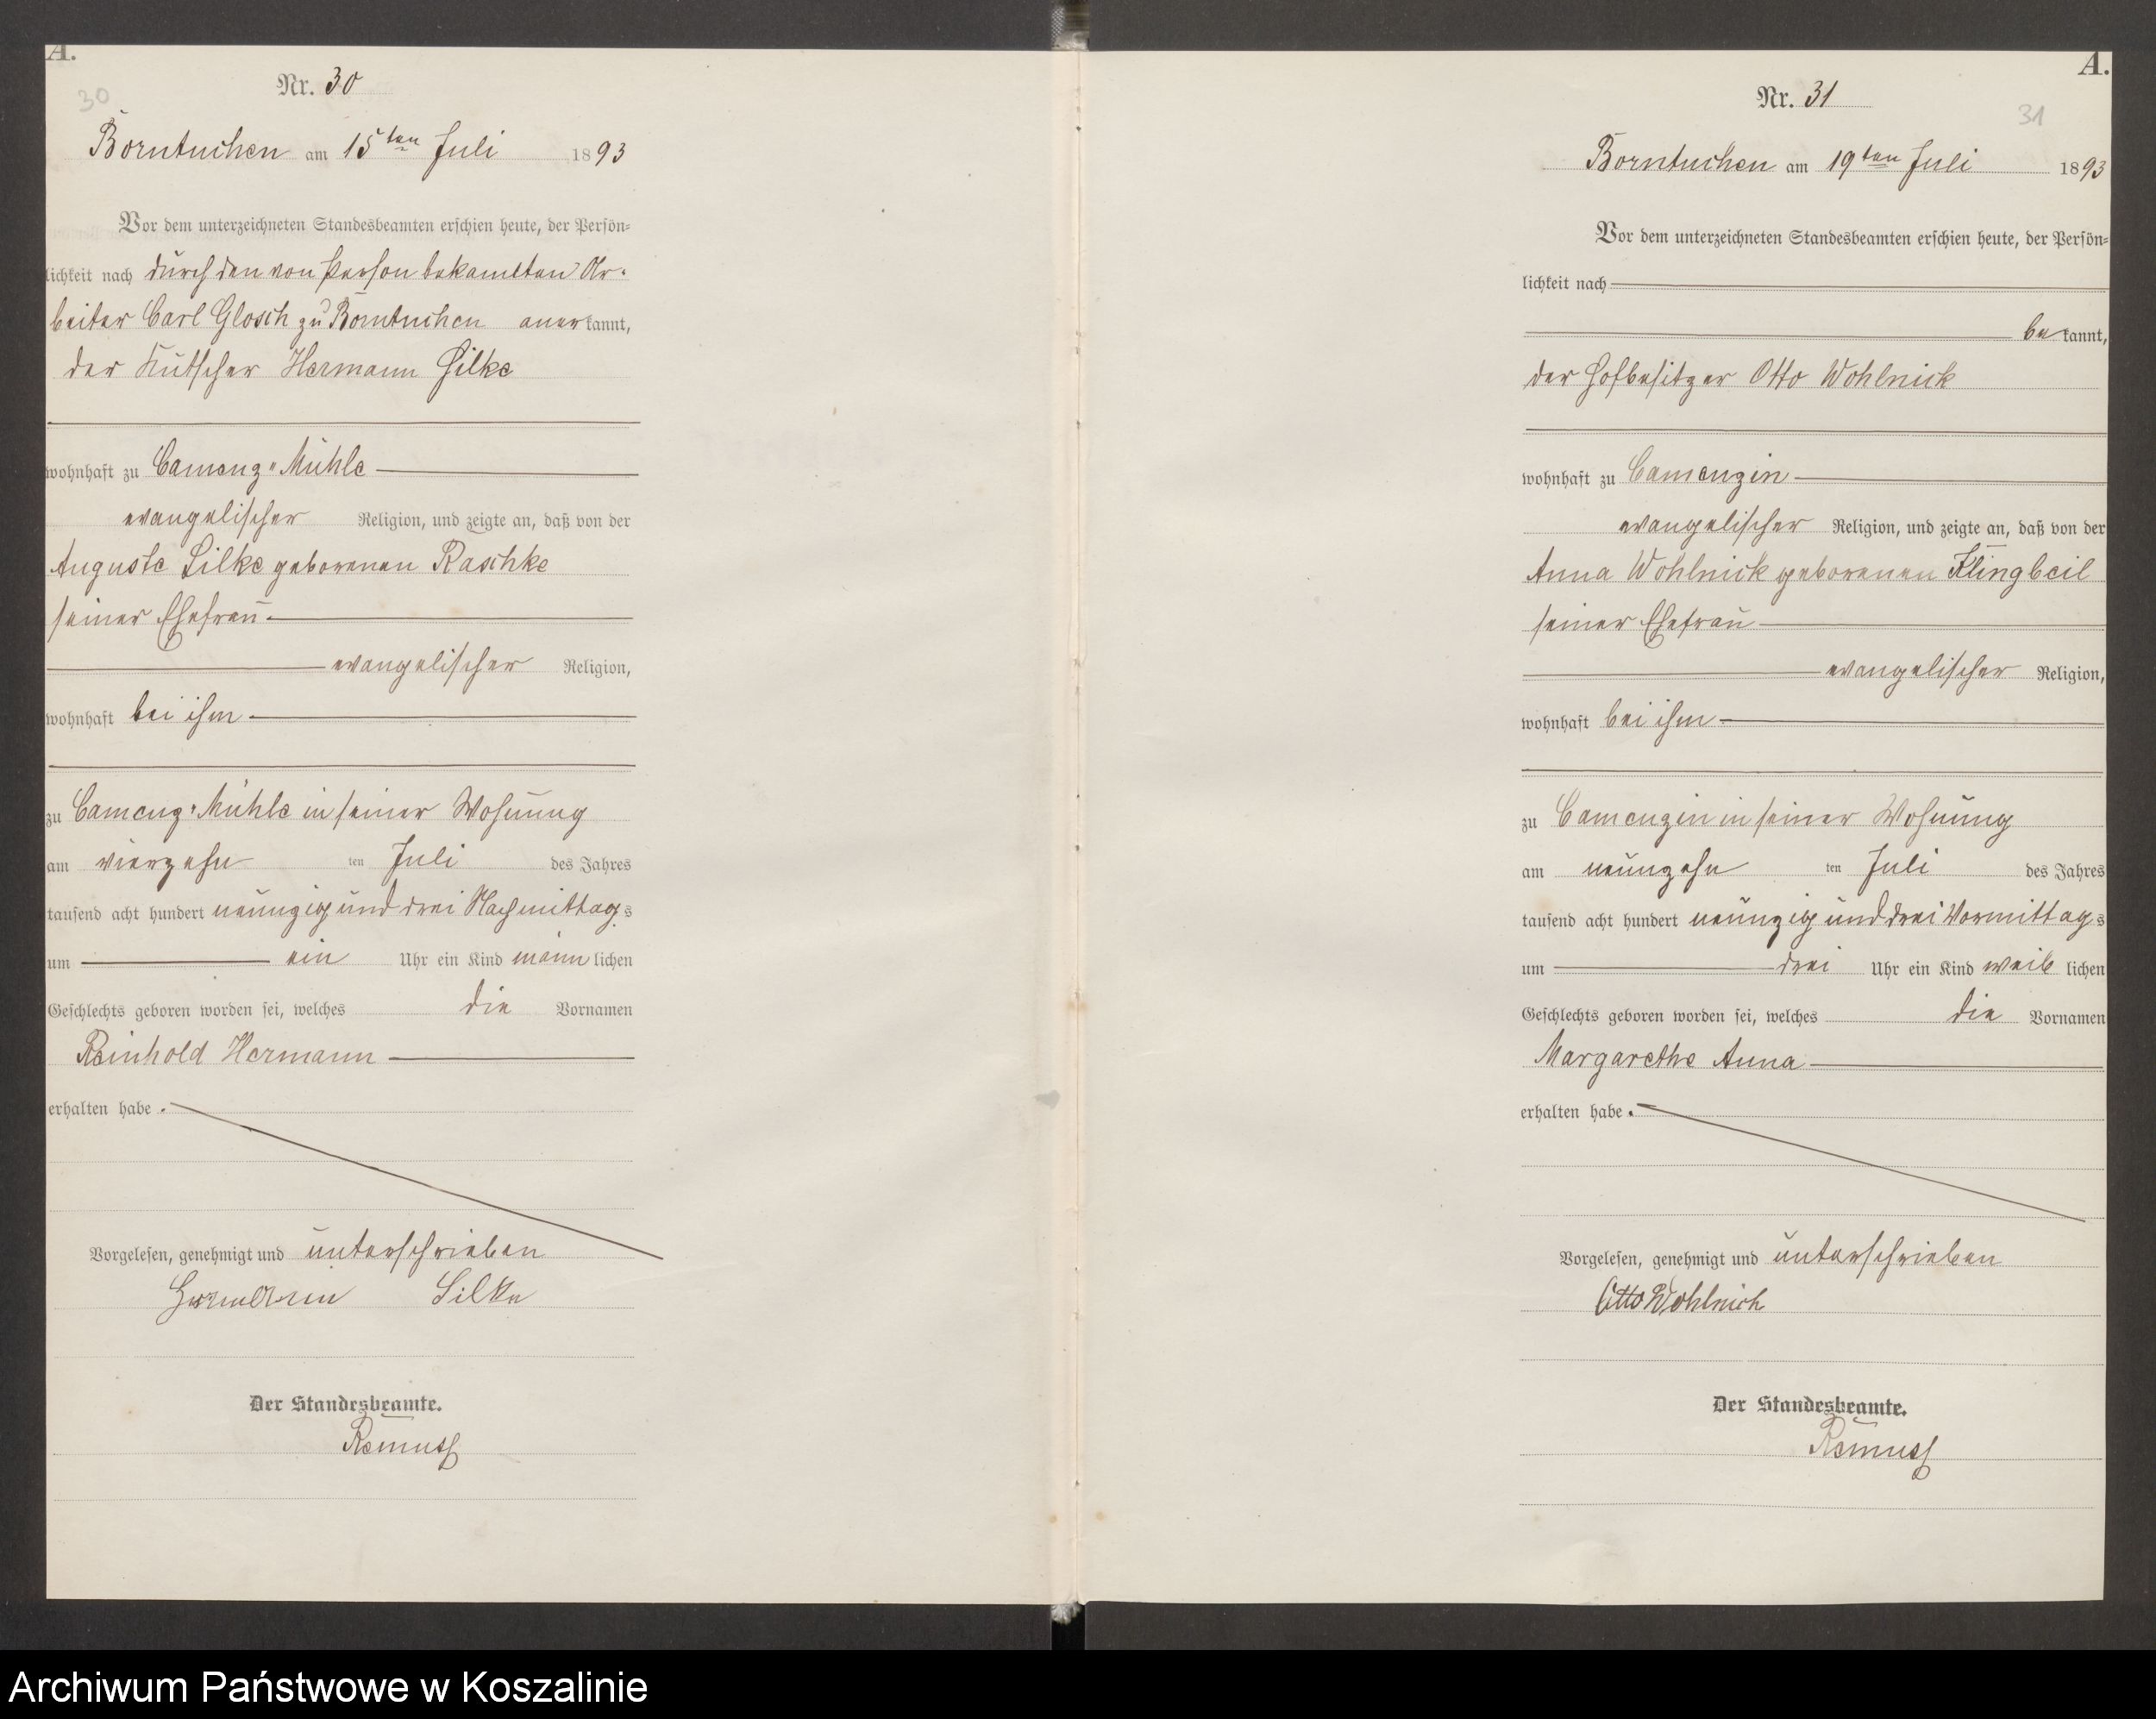 A.
30
Nr. 30
Borntuchen am 15ten Juli 1893
Vor dem unterzeichneten Standesbeamten erschien heute, der Persön-
lichkeit nach durch den von Person bekannten Ar-
beiter Carl Glosch zu Borntuchen anerkannt,
der Kutscher Hermann Silke
wohnhaft zu Camenz-Mühle
evangelischer Religion, und zeigte an, daß von der
Auguste Silke geborenen Raschke
seiner Ehefrau
evangelischer Religion,
wohnhaft bei ihm
zu Camenz-Mühle in seiner Wohnung
am vierzehn ten Juli des Jahres
tausend acht hundert neunzig und drei Nachmittags
um ein Uhr ein Kind männlichen
Geschlechts geboren worden sei, welches die Vornamen
Reinhold Hermann
erhalten habe.
Vorgelesen, genehmigt und unterschrieben
Hermann Silke
Der Standesbeamte.
Remus
A.
31
Nr. 31
Borntuchen am 19ten Juli 1893
Vor dem unterzeichneten Standesbeamten erschien heute, der Persön-
lichkeit nach
bekannt,
der Hofbesitzer Otto Wohlnick
wohnhaft zu Camenzin
evangelischer Religion, und zeigte an, daß von der
Anna Wohlnick geborenen Klingbeil
seiner Ehefrau
evangelischer Religion,
wohnhaft bei ihm
zu Camenzin in seiner Wohnung
am neunzehn ten Juli des Jahres
tausend acht hundert neunzig und drei Vormittags
um drei Uhr ein Kind weiblichen
Geschlechts geboren worden sei, welches die Vornamen
Margarethe Anna
erhalten habe.
Vorgelesen, genehmigt und unterschrieben
Otto Wohlnick
Der Standesbeamte.
Remus
Archiwum Państwowe w Koszalinie